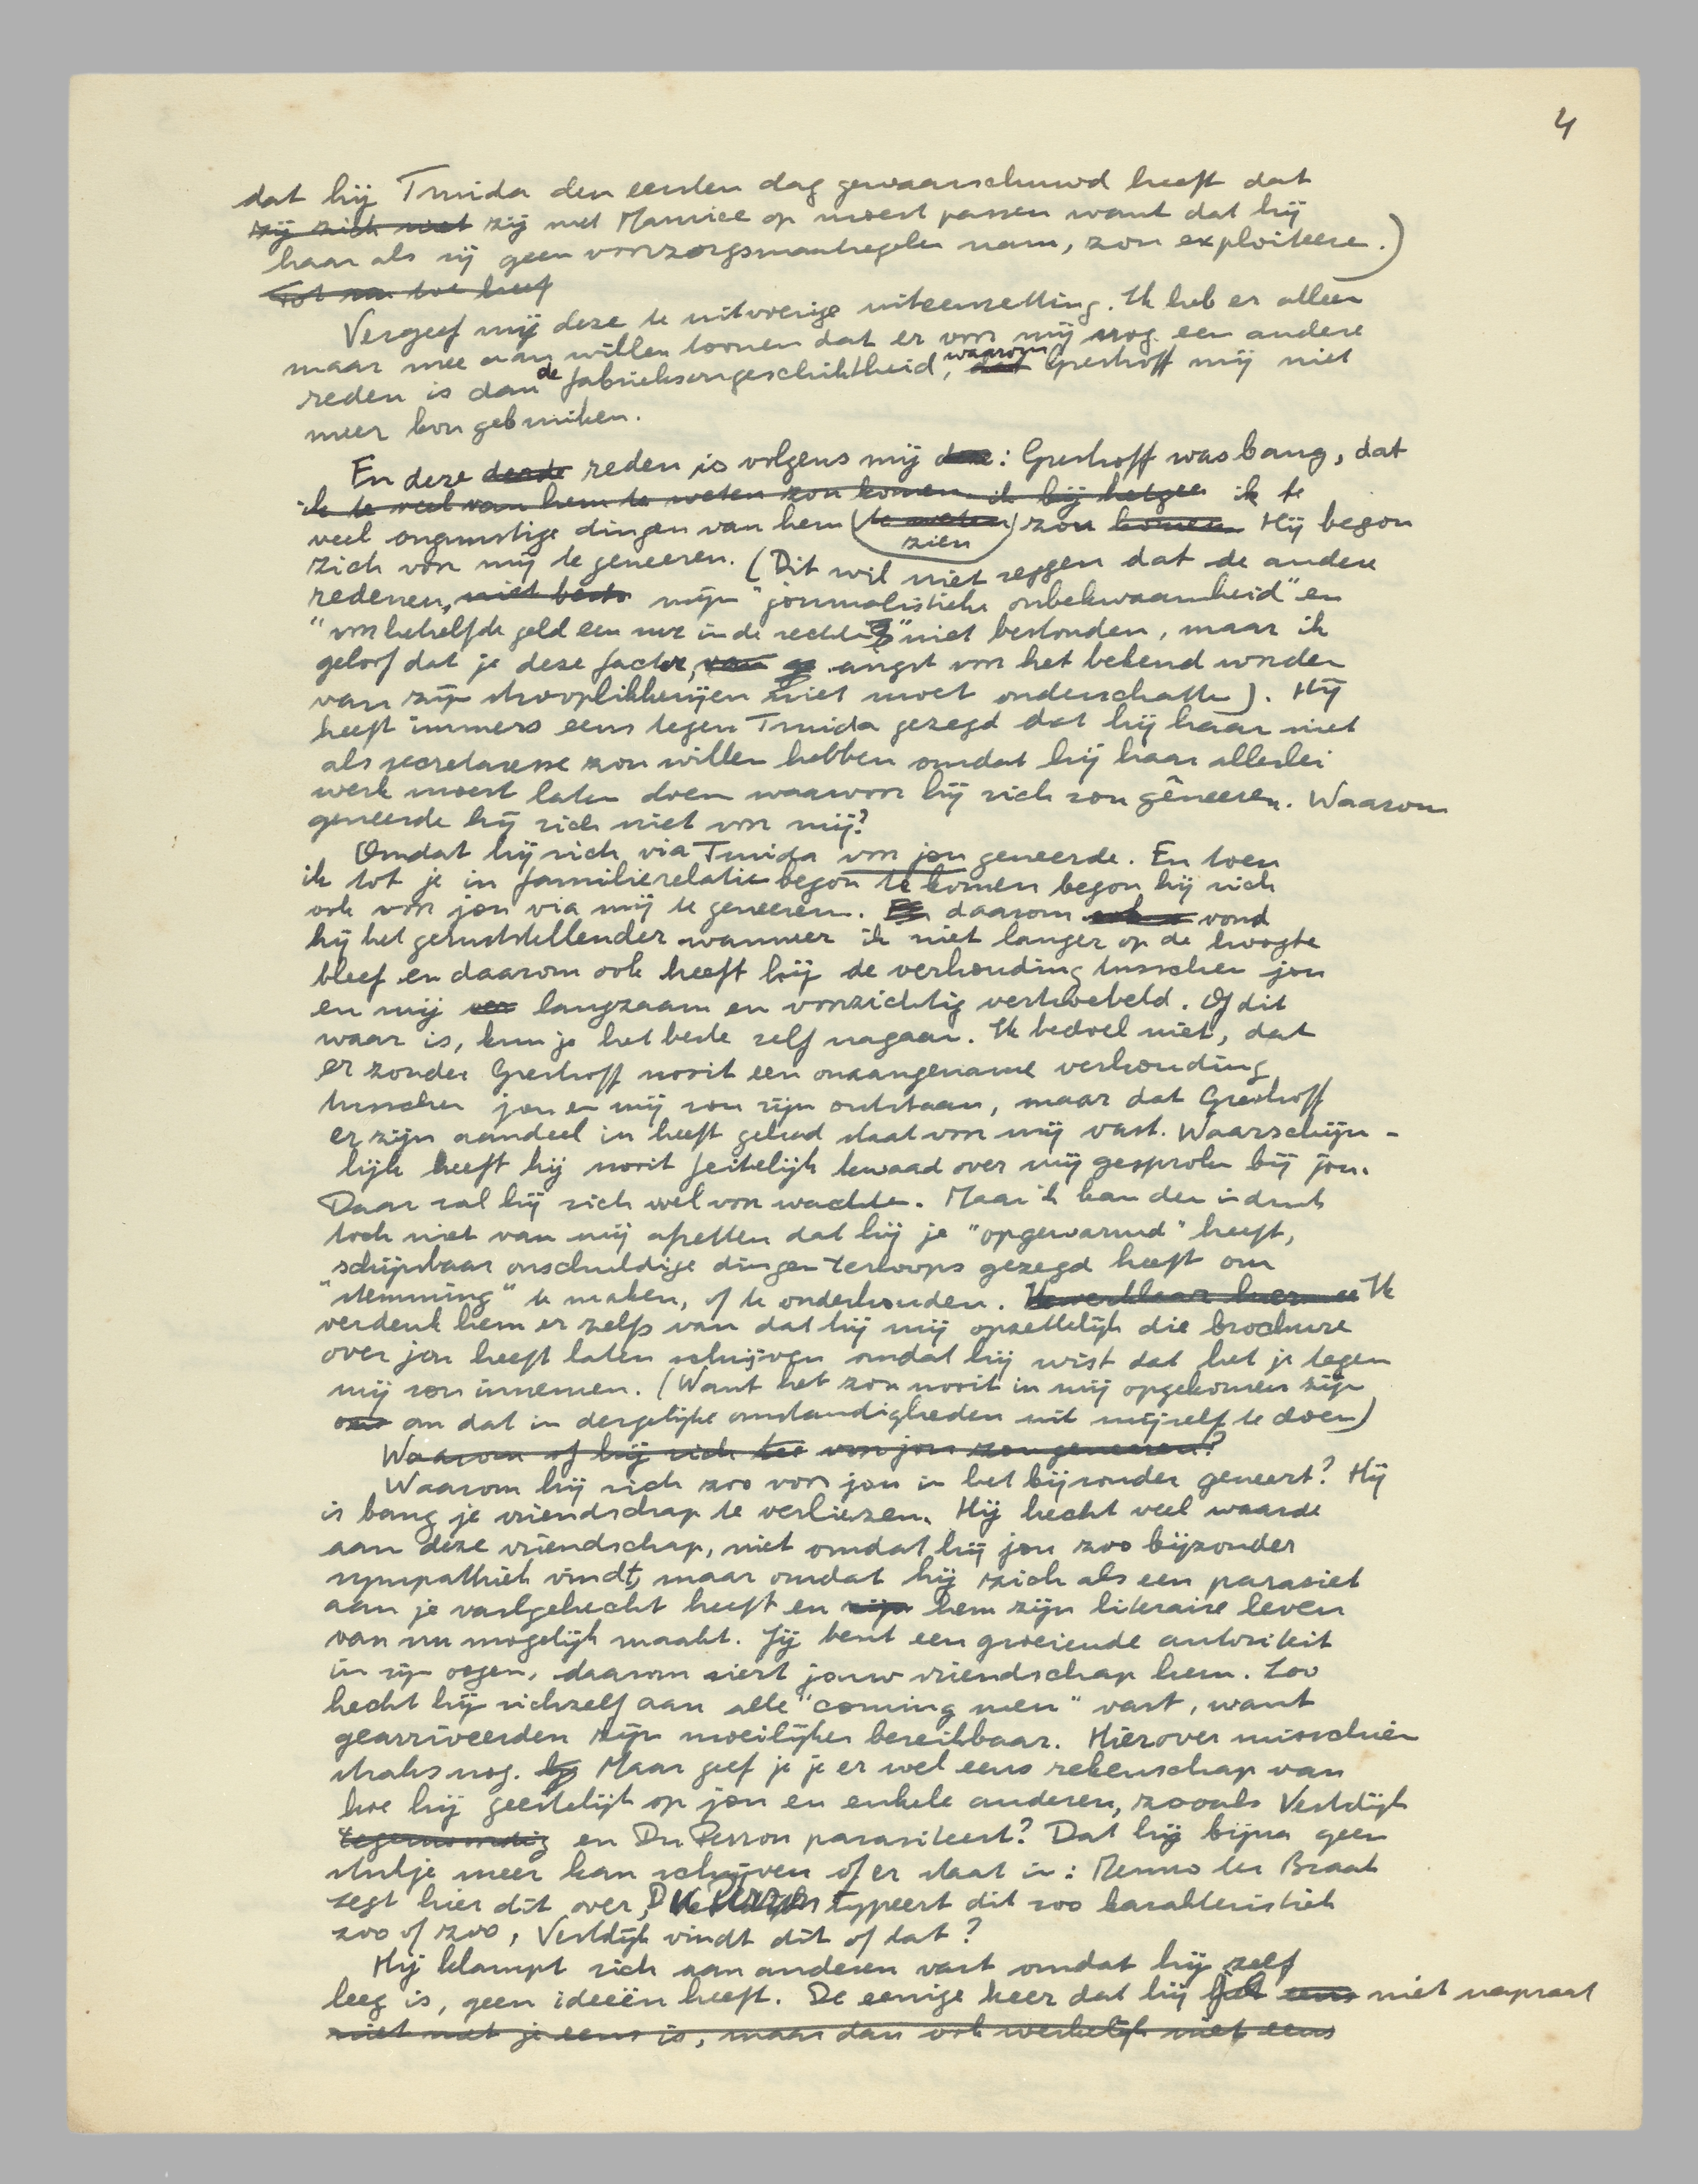 4
dat hij Truida den eersten dag gewaarschuwd heeft dat
zij zich met zij met Maurice op moest passen want dat hij
haar als zij geen voorzorgsmaatregelen nam, zou exploiteere.)
Tot nu toe heef
Vergeef mij deze te uitvoerige uiteenzetting. Ik heb er alleen
maar mee aan willen toonen dat er voor mij nog een andere
reden is dan de fabrieksongeschiktheid, waarom Greshoff mij niet
meer kon gebruiken.
En deze derde reden is volgens mij deze: Greshoff was bang, dat
ik te veel van hem te weten zou komen ik bij hetgee ik te
veel ongunstige dingen van hem (te weten) zien zou komen. Hij begon
zich voor mij te geneeren. (Dit wil niet zeggen dat de andere
redenen, niet best mijn "journalistieke onbekwaamheid" en
"voor hetzelfde geld een met in de rechten" niet bestonden, maar ik
geloof dat je deze factor, angst voor het bekend worden
van zijn strooplikkerijen niet moet onderschatte). Hij
heeft immers eens tegen Truida gezegd dat hij haar niet
als secretaresse zou willen hebben omdat hij haar allerlei
werk moest laten doen waarvoor hij zich zou gêneeren. Waarom
geneerde hij zich niet voor mij?
Omdat hij zich via Truida voor jou geneerde. En toen
ik tot je in familierelatie begon te komen begon hij zich
ook voor jou via mij te geneeren. En daarom vond
hij het geruststellender wanneer ik niet langer op de hoogte
bleef en daarom ook heeft hij de verhouding tusschen jou
en mij ver langzaam en voorzichtig vertroebeld. Of dit
waar is, kun je het beste zelf nagaan. Ik bedoel niet, dat
er zonder Greshoff nooit een onaangename verhouding
tusschen jou en mij zou zijn ontstaan, maar dat Greshoff
er zijn aandeel in heeft gehad staat voor mij vast. Waarschijn-
lijk heeft hij nooit feitelijk kwaad over mij gesproken bij jou.
Daar zal hij zich wel voor wachten. Maar ik kan den indruk
toch niet van mij afzetten dat hij je "opgewarmd" heeft,
schijnbaar onschuldige dingen terloops gezegd heeft om
"stemming" te maken, of te onderhouden. Ik verklaar hier me Ik
verdenk hem er zelfs van dat hij mij opzettelijk die brochure
over jou heeft laten schrijven omdat hij wist dat het je tegen
mij zou innemen. (Want het zou nooit in mij opgekomen zijn
om dat in dergelijke omstandigheden uit mijzelf te doen)
Waarom of hij zich voor jou zou geneeren?
Waarom hij zich zoo voor jou in het bijzonder geneert? Hij
is bang je vriendschap te verliezen. Hij hecht veel waarde
aan deze vriendschap, niet omdat hij jou zoo bijzonder
sympathiek vindt, maar omdat hij zich als een parasiet
aan je vastgehecht heeft en zijn hem zijn literaire leven
van nu mogelijk maakt. Jij bent een groeiende autoriteit
in zijn oogen, daarom siert jouw vriendschap hem. Zoo
hecht hij zichzelf aan alle "coming men" vast, want
gearriveerden zijn moeilijker bereikbaar. Hierover misschien
straks nog. Maar geef je je er wel eens rekenschap van
hoe hij geestelijk op jou en enkele anderen, zooals Vestdijk
tegenwoordig en Du Perron parasiteert? Dat hij bijna geen
stukje meer kan schrijven of er staat in: Menno ter Braak
zegt hier dit over, Du Perron typeert dit zoo karakteristiek
zoo of zoo, Vestdijk vindt dit of dat?
Hij klampt zich aan anderen vast omdat hij zelf
leeg is, geen ideeën heeft. De eenige keer dat hij je eens niet napraat
niet met je eens is, maar dan ook werkelijk niet eens